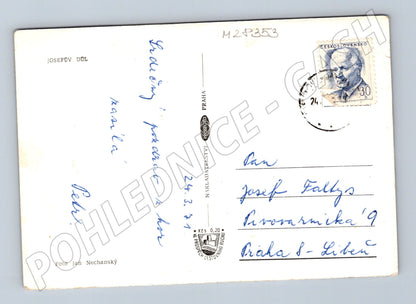 M28353
JOSEFŮV DŮL
Srdečný
pozdrav z hor
24.3.71
nasílá
Petr
Foto Jan Nechanský
NAKLADATELSTVÍ
PRAHA
Kčs 0,20
ČESKOSLOVENSKO
30
24.
Pan
Josef Faltys
Pivovarnická 9
Praha 8 - Libeň
POHLEDNICE - CECH